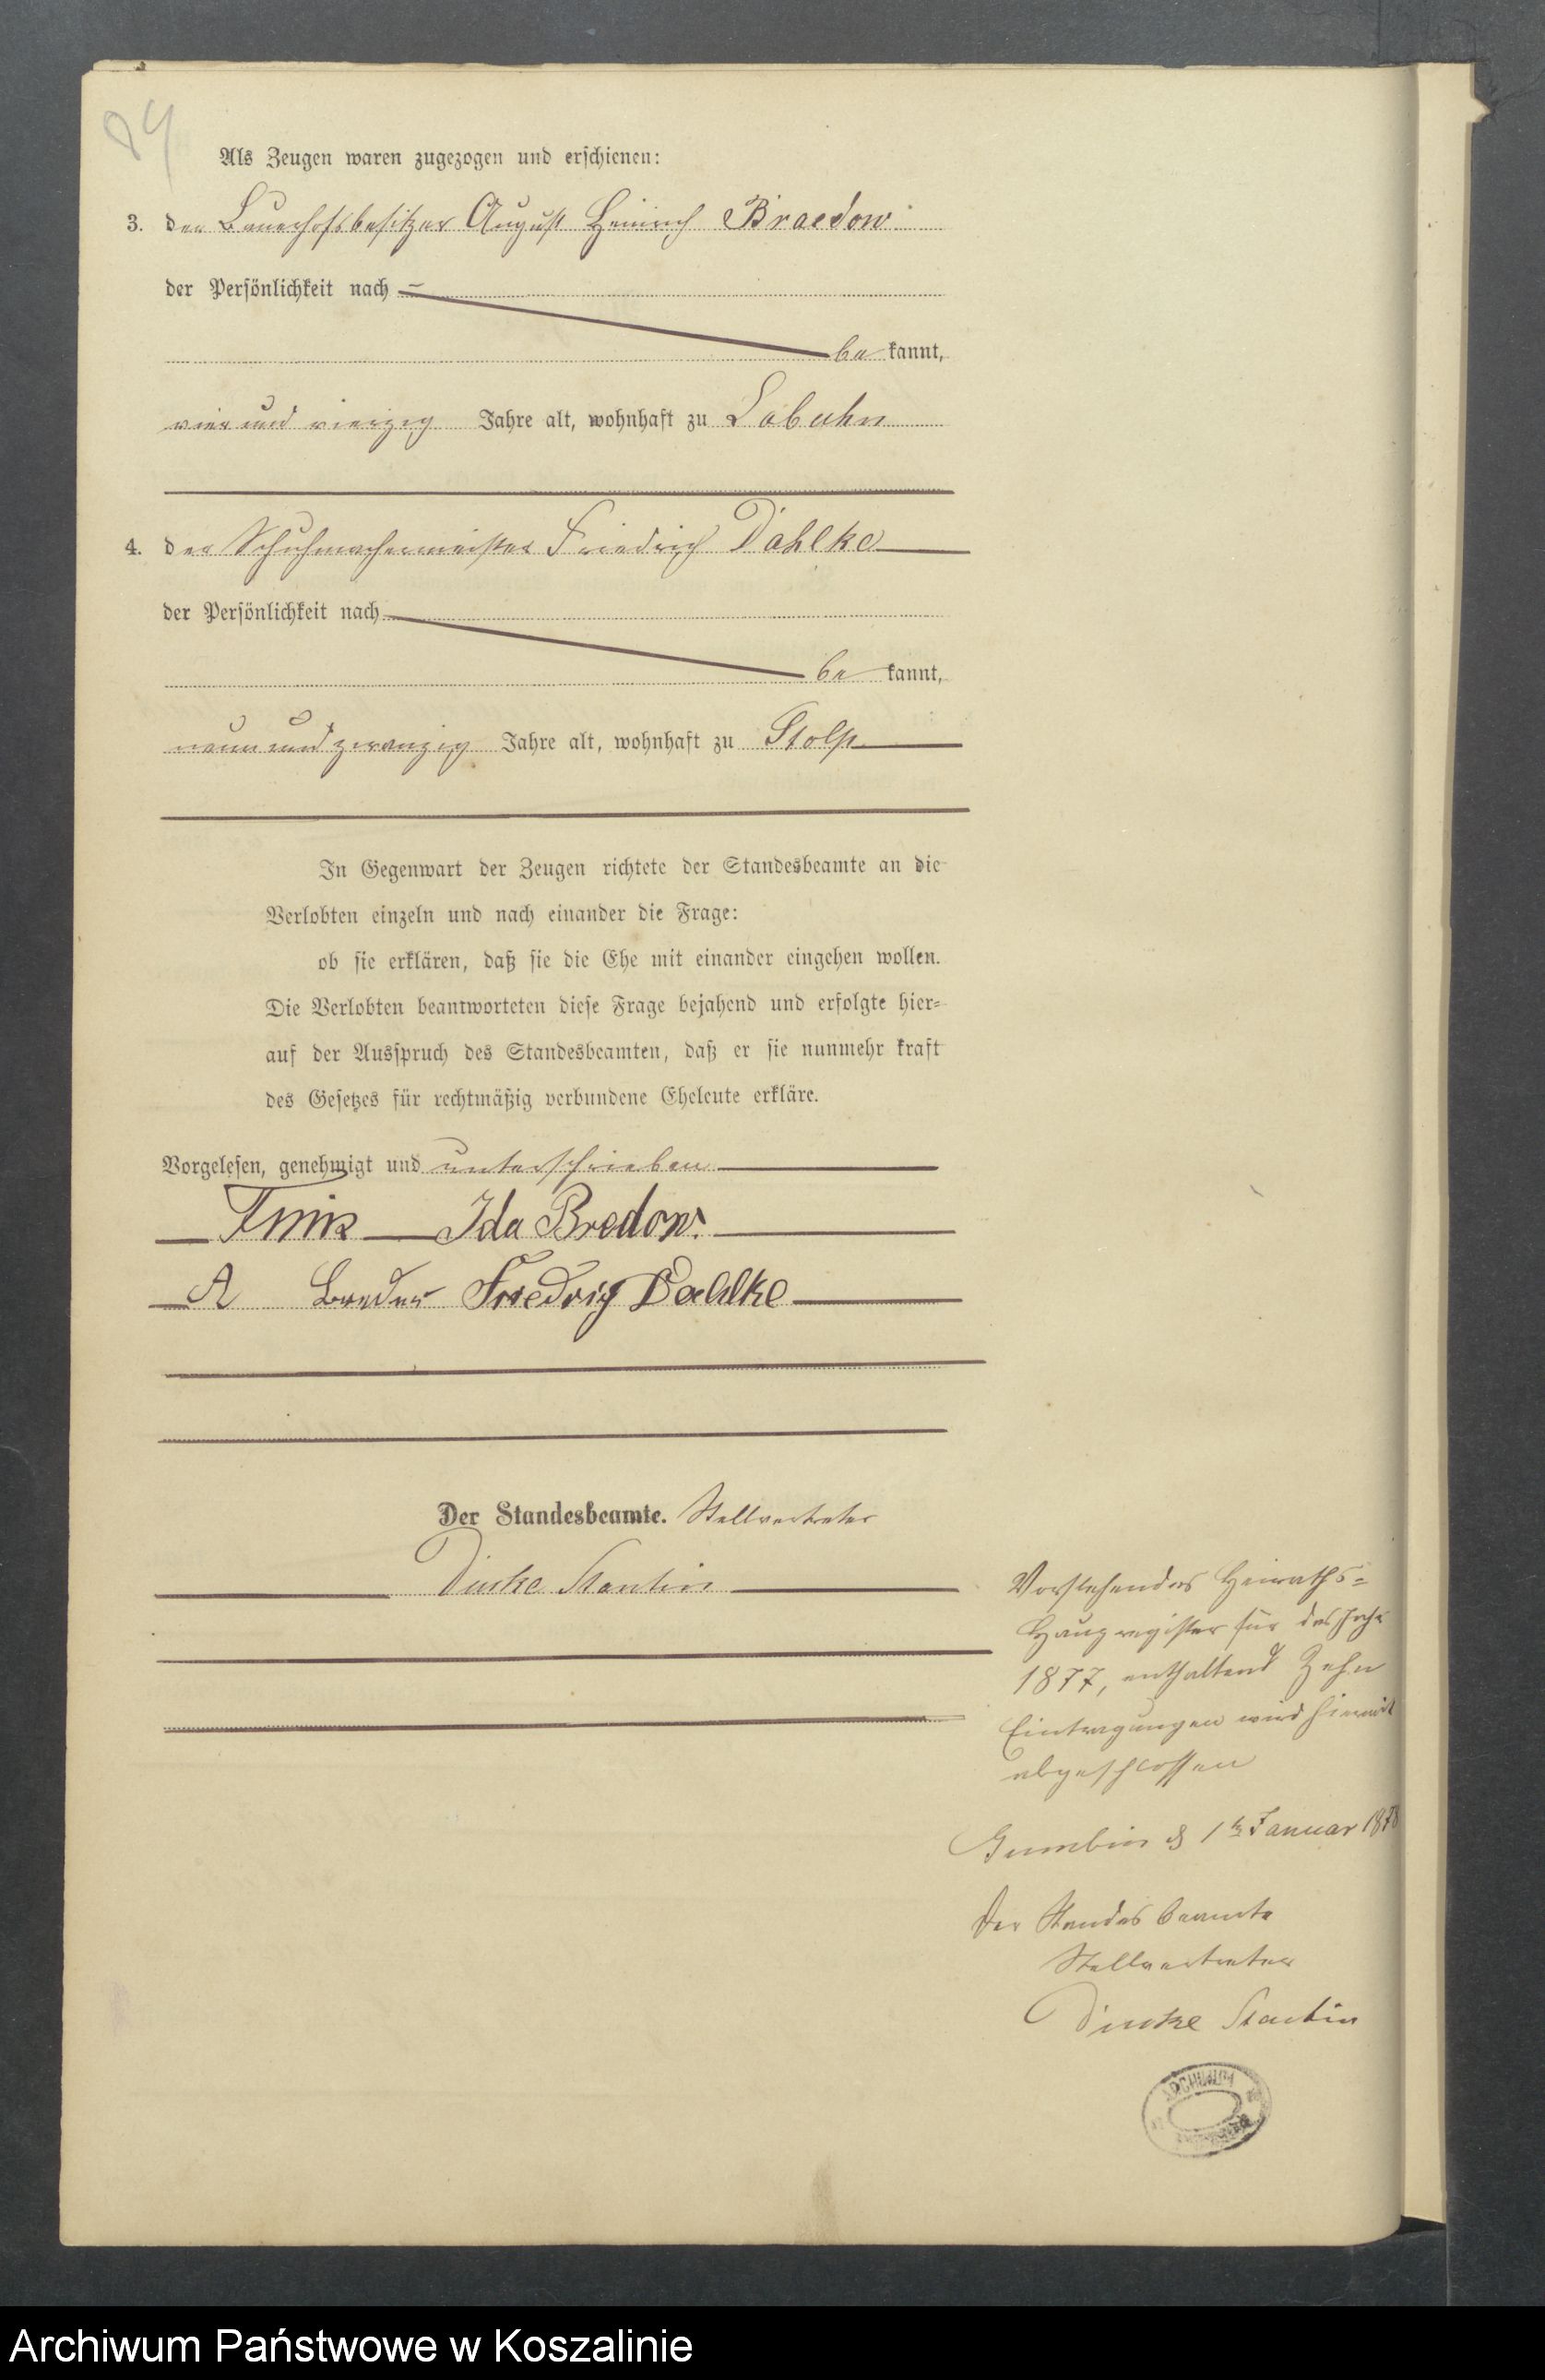 Als Zeugen waren zugezogen und erschienen:
3. der Bauerhofsbesitzer August Heinrich Braedow
der Persönlichkeit nach
be kannt,
vier und vierzig Jahre alt, wohnhaft zu Labuhn
4. der Schuhmachermeister Friedrich Dahlke
der Persönlichkeit nach
be kannt,
neun und zwanzig Jahre alt, wohnhaft zu Stolp
In Gegenwart der Zeugen richtete der Standesbeamte an die
Verlobten einzeln und nach einander die Frage:
ob sie erklären, daß sie die Ehe mit einander eingehen wollen.
Die Verlobten beantworteten diese Frage bejahend und erfolgte hier-
auf der Ausspruch des Standesbeamten, daß er sie nunmehr kraft
des Gesetzes für rechtmäßig verbundene Eheleute erkläre.
Vorgelesen, genehmigt und unterschrieben
Ida Bredow
A Friedrig Dahlke
Der Standesbeamte. Stellvertreter
Vorstehendes Heiraths-
register für das Jahr
1877, enthaltend Zehn
Eintragungen wird hiermit
abgeschlossen
Gumbin d 1 Januar 1878
Der Standesbeamte
Stellvertreter
ARCHIWUM
Archiwum Państwowe w Koszalinie